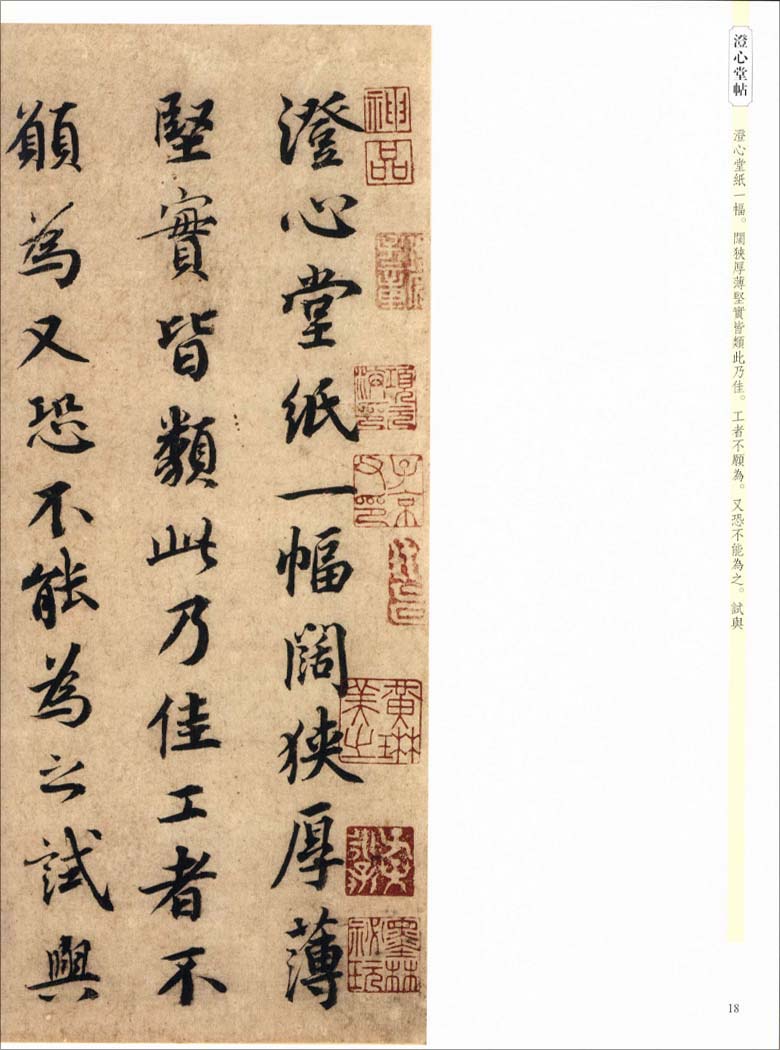 澄心堂帖
澄心堂紙一幅。闊狹厚薄堅實皆類此乃佳。工者不願為。又恐不能為之。試與
澄心堂紙一幅闊狹厚薄
堅實皆類此乃佳工者不
願為又恐不能為之試與
神品
項元
子京
黃琳
美之
墨林
祕玩
18